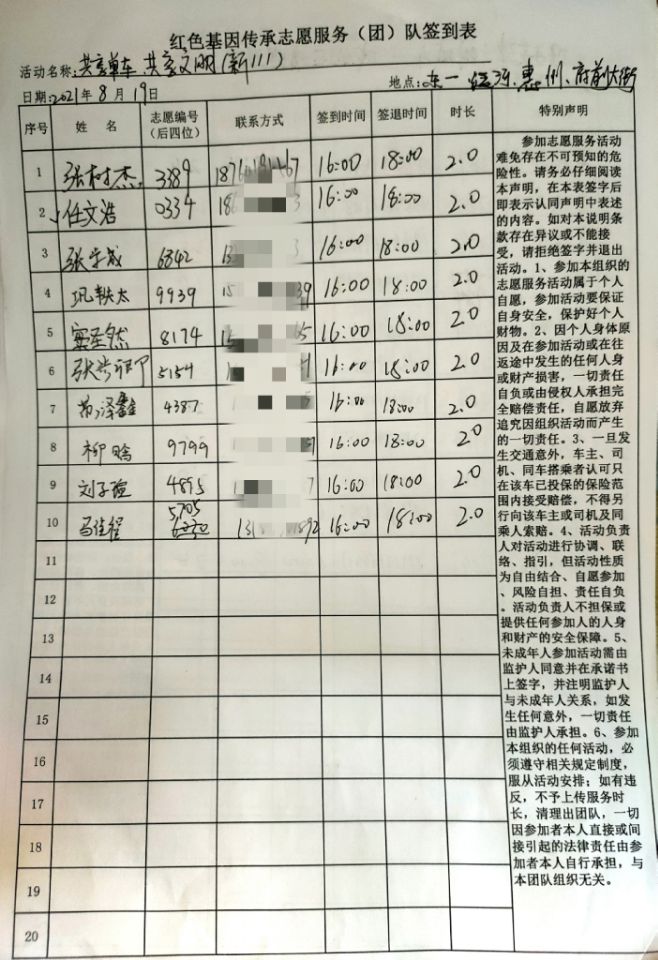 红色基因传承志愿服务（团）队签到表
活动名称：共享单车 共享文明（新111）
日期：2021年8月19日
地点：东一 惠州、府前大街
序号 姓 名 志愿编号（后四位） 联系方式 签到时间 签退时间 时长 特别声明
1 张树杰 3389 16:00 18:00 2.0
2 任文浩 0334 16:00 18:00 2.0
3 张宇成 6842 16:00 18:00 2.0
4 巩轶太 9939 16:00 18:00 2.0
5 8174 16:00 18:00 2.0
6 5154 16:00 18:00 2.0
7 4387 16:00 18:00 2.0
8 柳晗 9799 16:00 18:00 2.0
9 刘子 4895 16:00 18:00 2.0
10 马佳程 5705 16:00 18:00 2.0
11
12
13
14
15
16
17
18
19
20
参加志愿服务活动
难免存在不可预知的危
险性。请务必仔细阅读
本声明，在本表签字后
即表示认同声明中表述
的内容。如对本说明条
款存在异议或不能接
受，请拒绝签字并退出
活动。1、参加本组织的
志愿服务活动属于个人
自愿，参加活动要保证
自身安全，保护好个人
财物。2、因个人身体原
因及在参加活动或在往
返途中发生的任何人身
或财产损害，一切责任
自负或由侵权人承担完
全赔偿责任，自愿放弃
追究因组织活动而产生
的一切责任。3、一旦发
生交通意外，车主、司
机、同车搭乘者认可只
在该车已投保的保险范
围内接受赔偿，不得另
行向该车主或司机及同
乘人索赔。4、活动负责
人对活动进行协调、联
络、指引，但活动性质
为自由结合、自愿参加
、风险自担、责任自负
。活动负责人不担保或
提供任何参加人的人身
和财产的安全保障。5、
未成年人参加活动需由
监护人同意并在承诺书
上签字，并注明监护人
与未成年人关系，如发
生任何意外，一切责任
由监护人承担。6、参加
本组织的任何活动，必
须遵守相关规定制度，
服从活动安排；如有违
反，不予上传服务时
长，清理出团队，一切
因参加者本人直接或间
接引起的法律责任由参
加者本人自行承担，与
本团队组织无关。